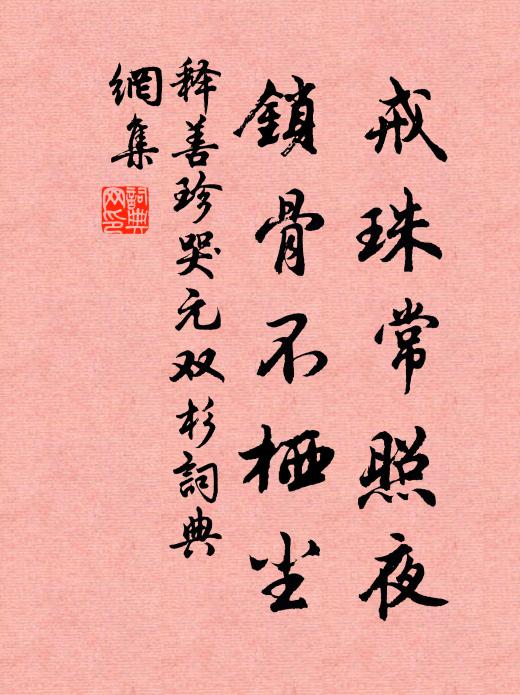 戒珠常照夜
鎖骨不栖尘
释善珍哭元双杉詞典
網集
詞典
网印